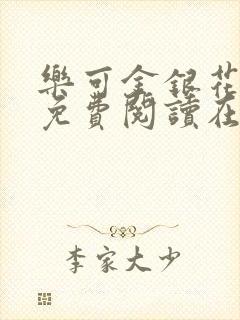 樂可金銀花
免費閱讀在
李家大少